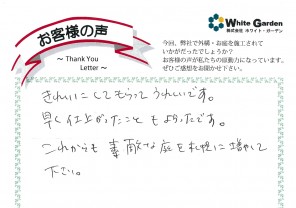 お客様の声
～ Thank You
Letter ～
White Garden
株式会社 ホワイト・ガーデン
今回、弊社で外構・お庭を施工されて
いかがだったでしょうか？
お客様の声が私たちの原動力になっています。
ぜひご感想をお聞かせ下さい。
きれいにしてもらってうれしいです。
早く仕上がったこともよかったです。
これからも素敵な庭を札幌に増やして
下さい。